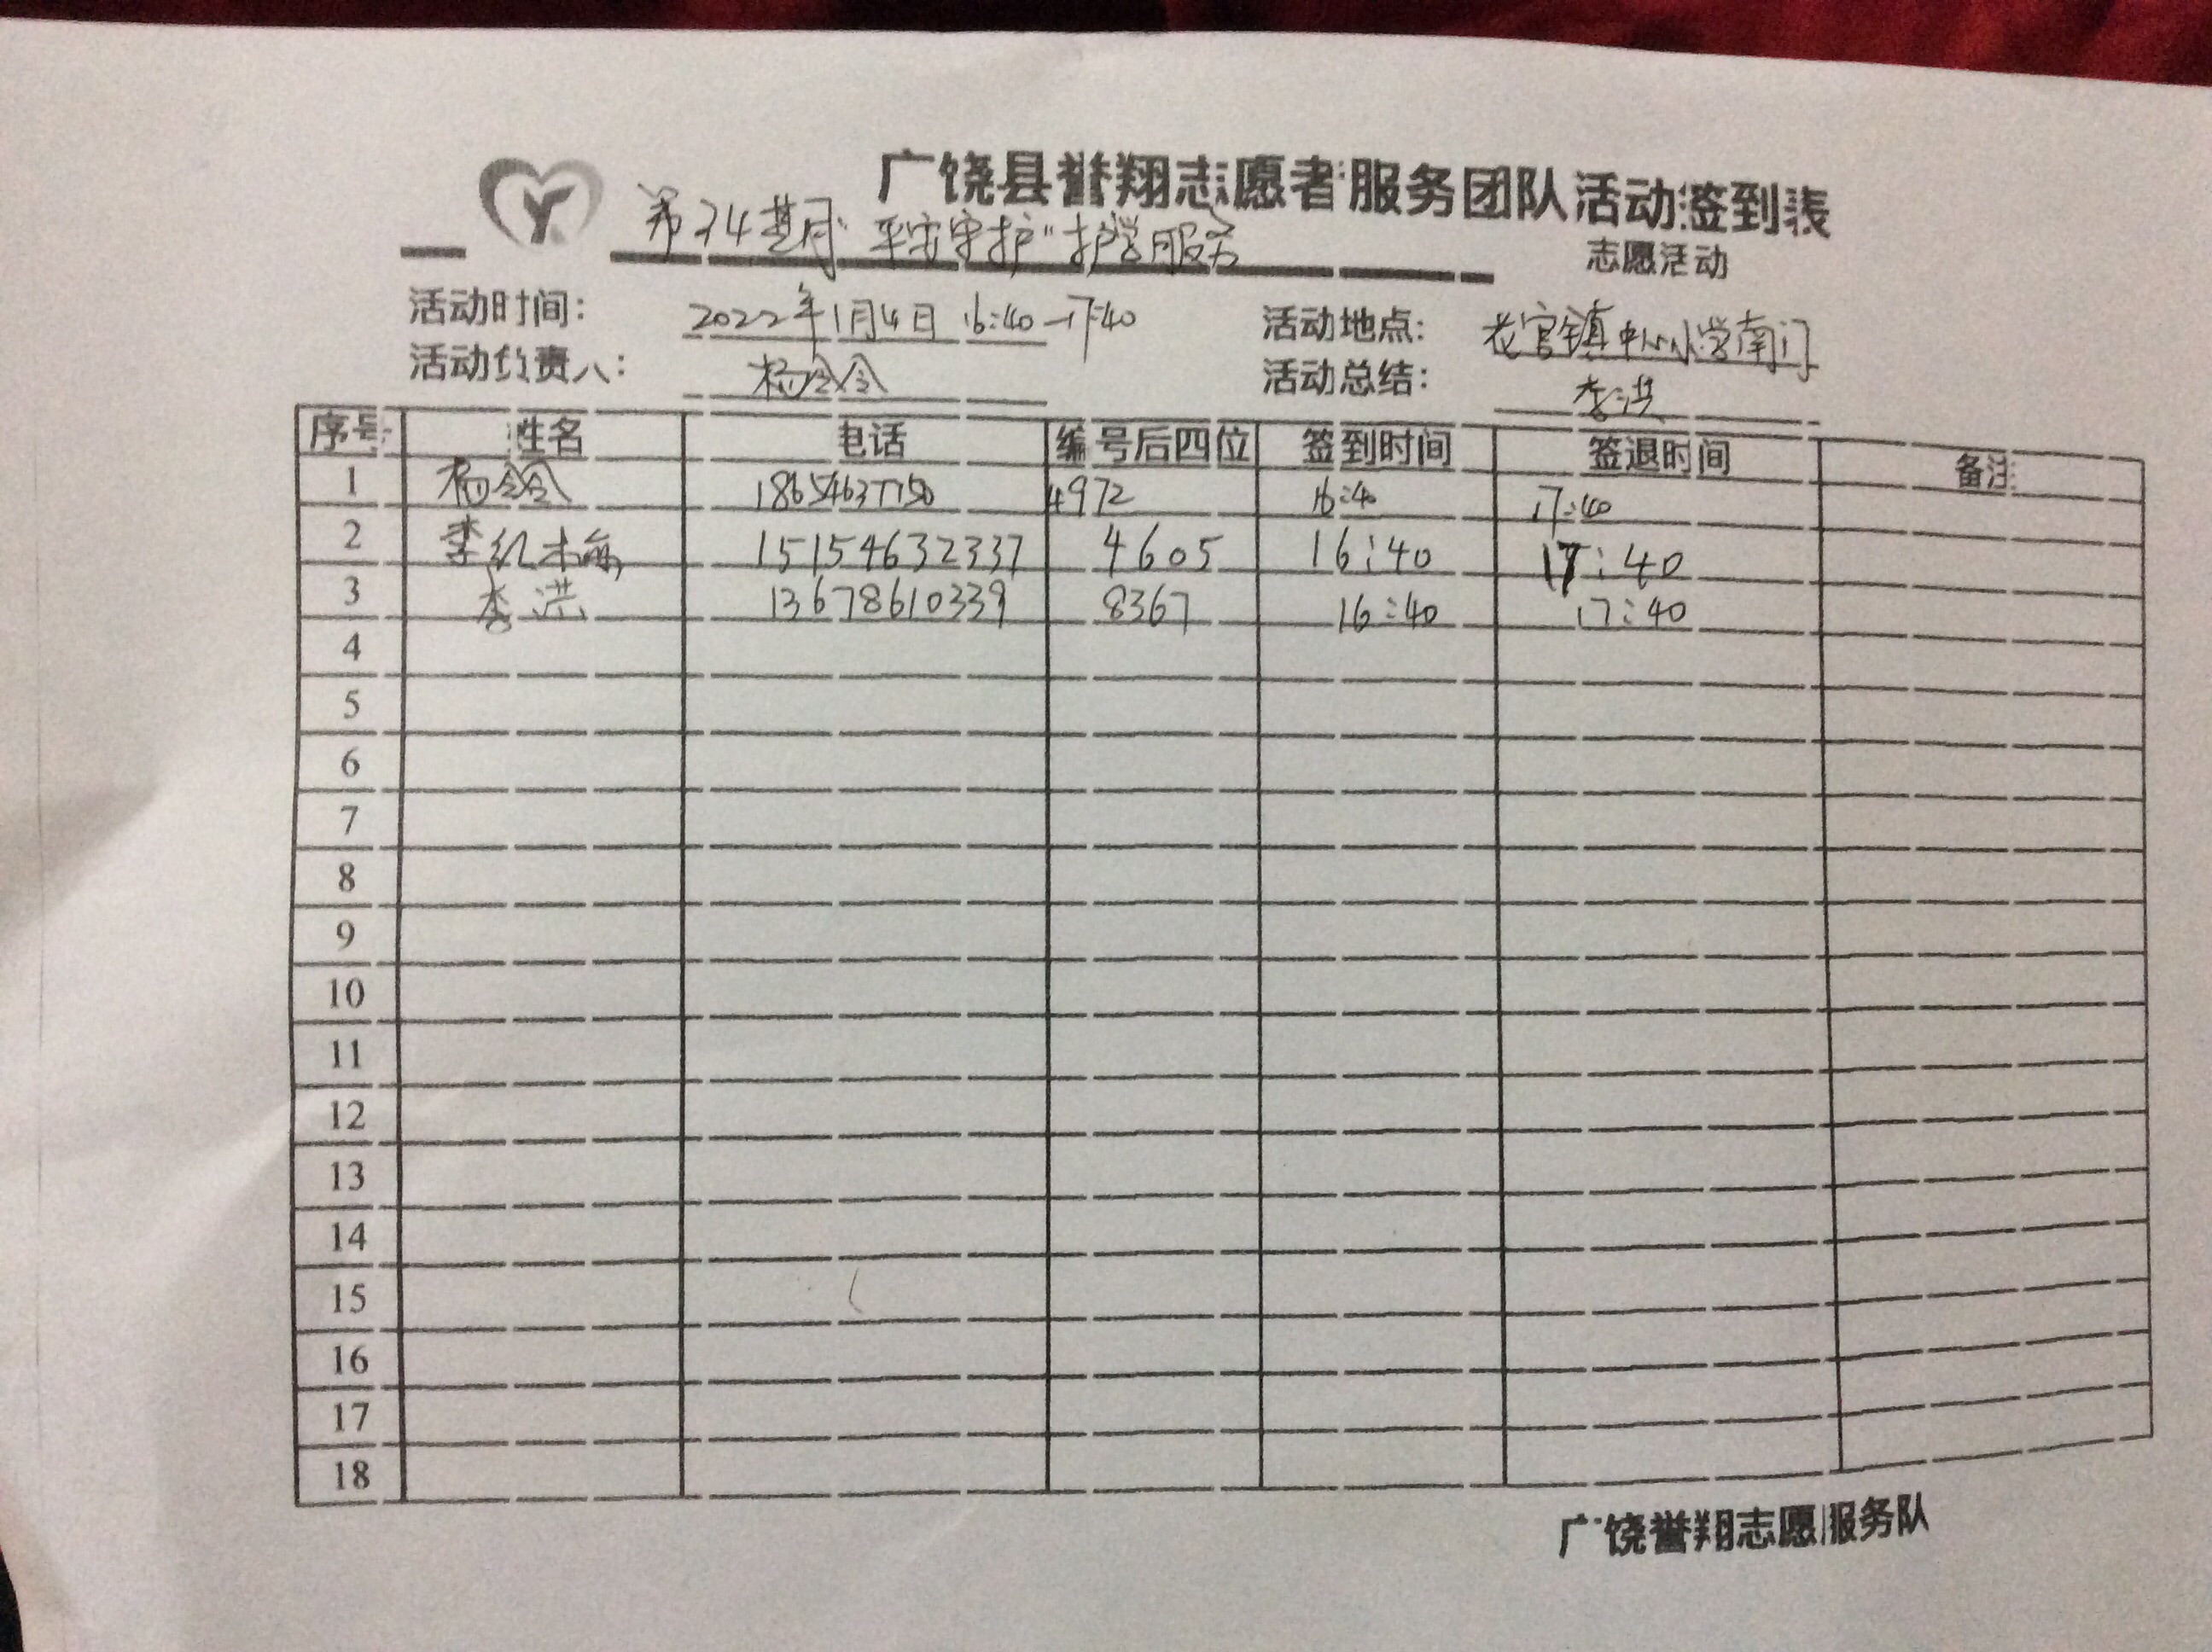 广饶县誉翔志愿者服务团队活动签到表
第34期"平安守护"护学服务 志愿活动
活动时间: 2022年1月4日 16:40-17:40 活动地点: 花官镇中心小学南门
活动负责人: 杨令令 活动总结: 李洪
序号 姓名 电话 编号后四位 签到时间 签退时间 备注
1 杨令令 18654637150 4972 16:40 17:40
2 李红梅 15154632337 4605 16:40 17:40
3 李洪 13678610339 8367 16:40 17:40
4
5
6
7
8
9
10
11
12
13
14
15
16
17
18
广饶誉翔志愿服务队